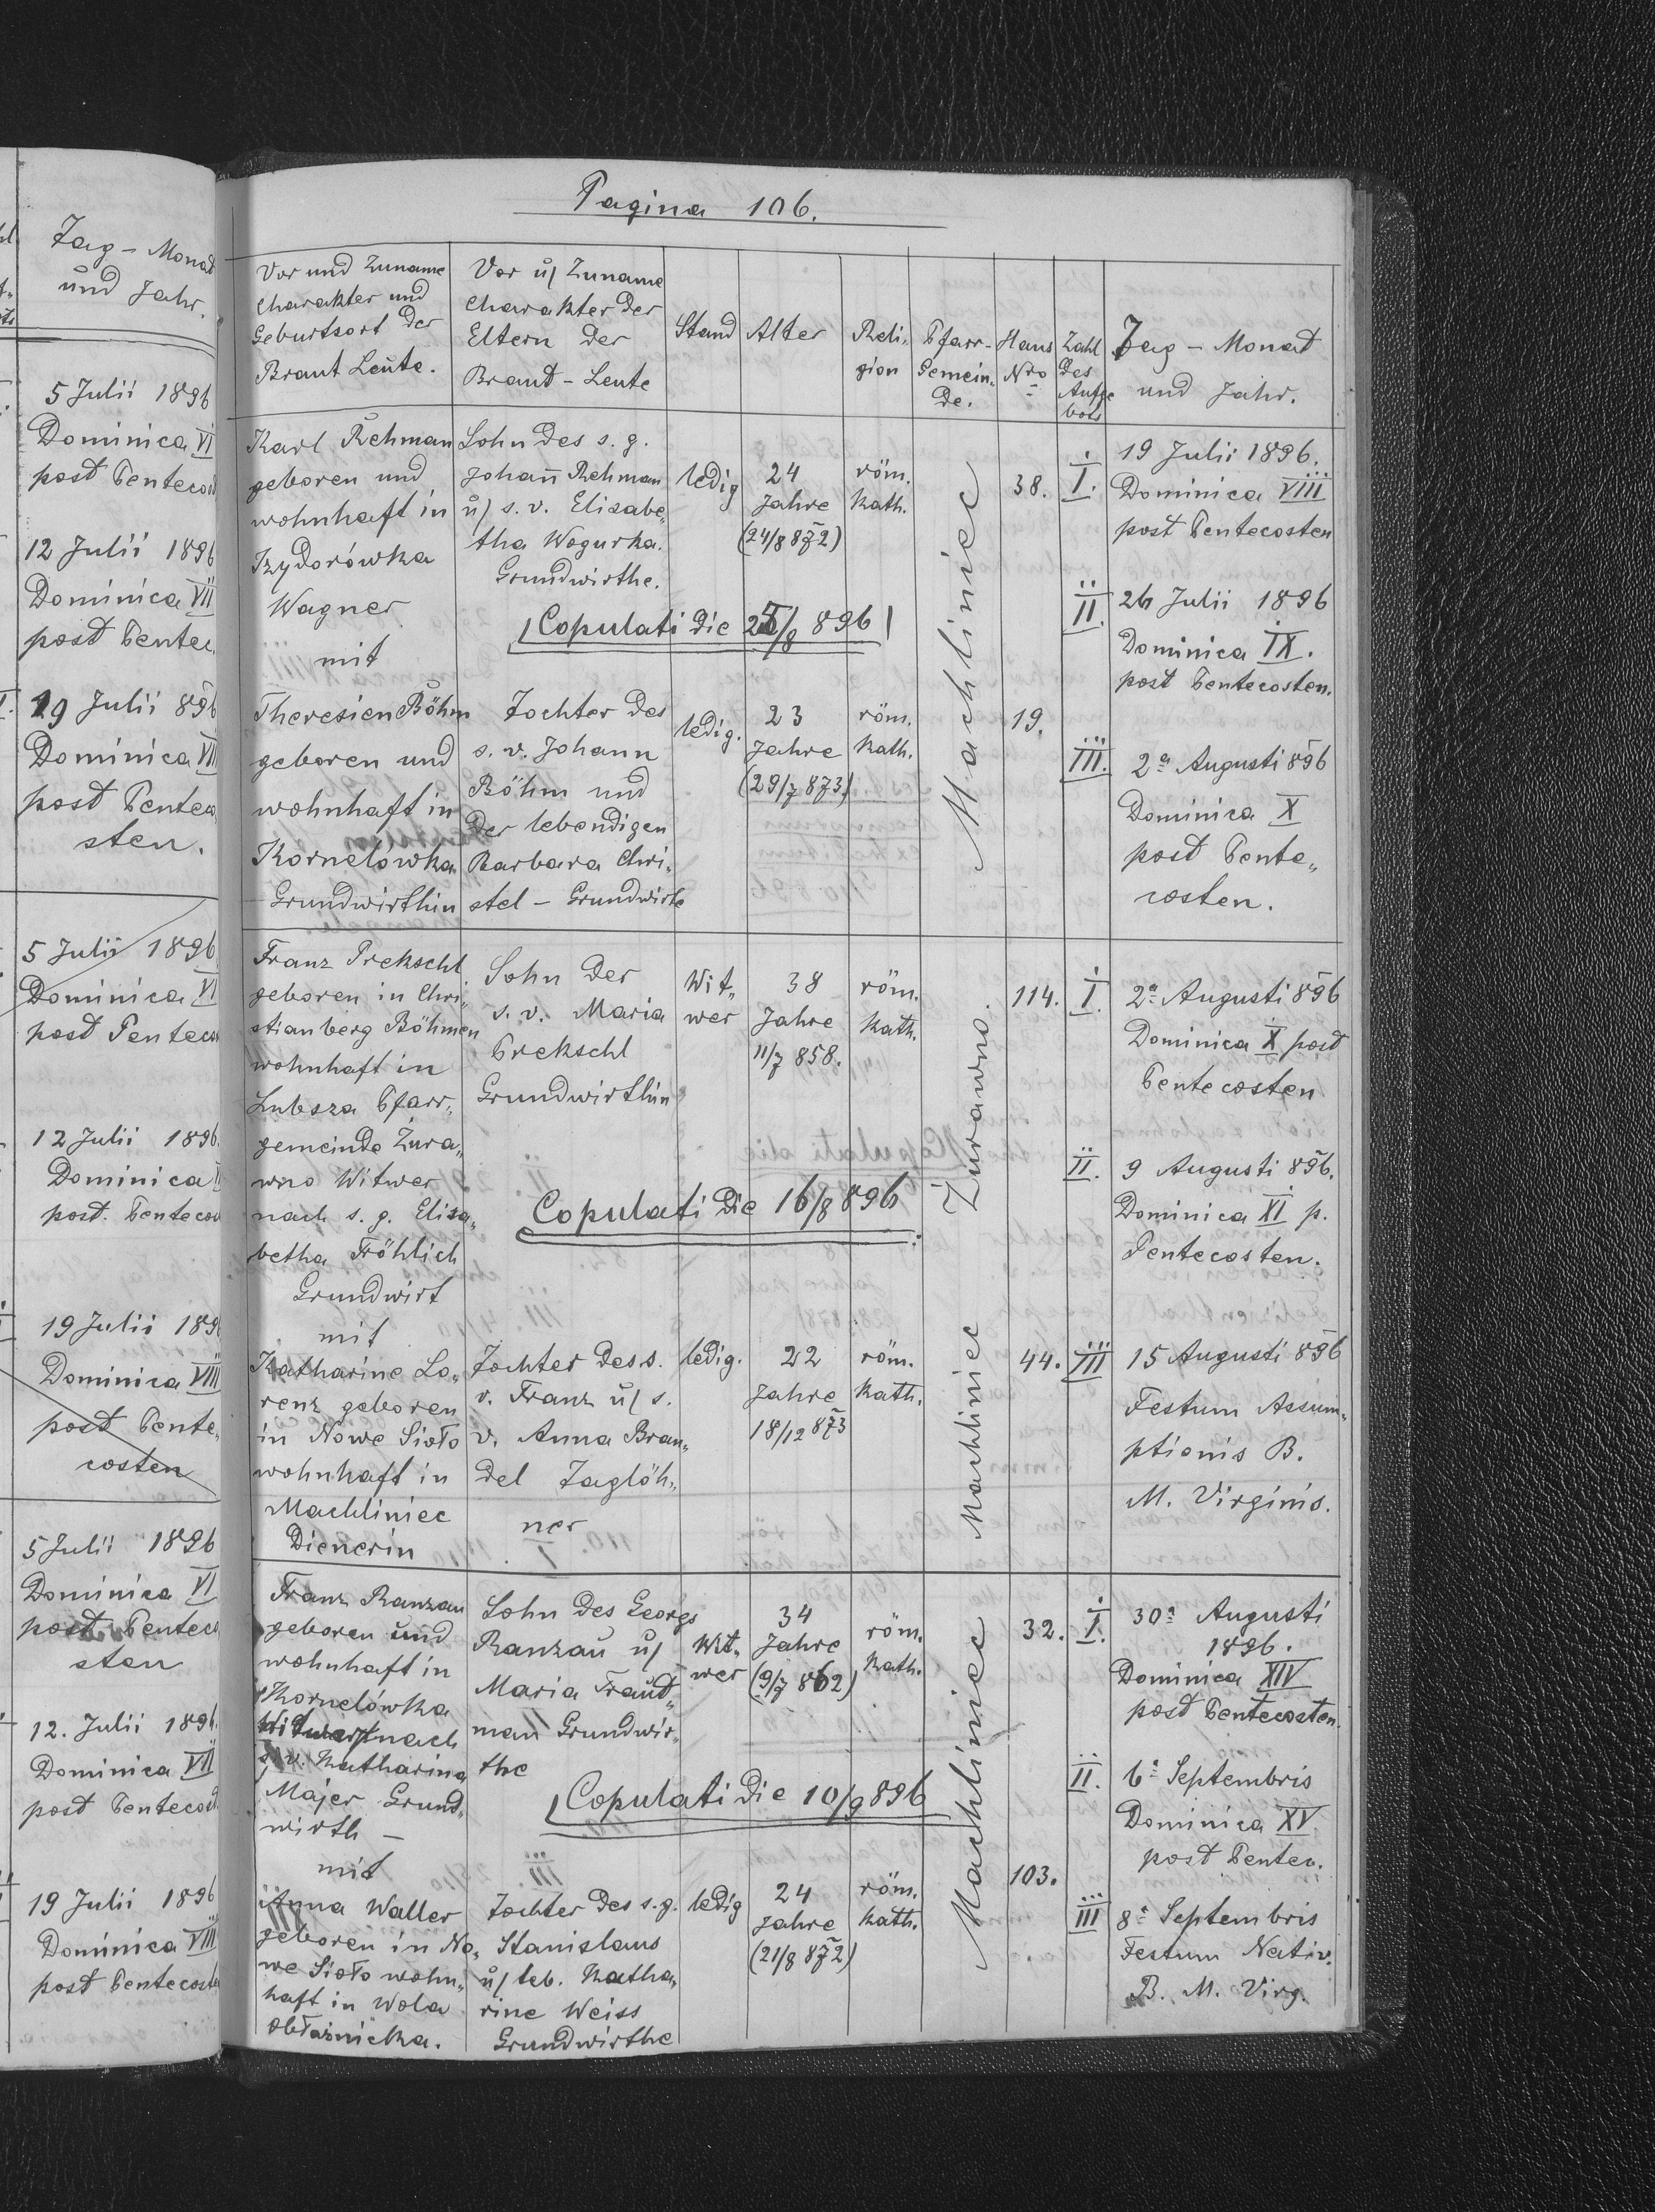 Tag - Monat
und Jahr.
5 Julii 1896
Dominica VI
post Pentecos
12 Julii 1896
Dominica VII
post Pentec
19 Julii 896
Dominica VIII
post Penteco
sten.
5 Julii 1896
Dominica VI
post Penteco
12 Julii 1896
Dominica
post. Pentecos
19 Julii 189
Dominica VIII
post Pente„
costen
5 Julii 1896
Dominica VI
post Penteco
sten
12. Julii 1896.
Dominica VII
post Pentecost
19 Julii 1896
Dominica VIII
post Pentecoste
Pagina 106.
Vor und Zuname
Charakter und
Geburtsort der
Braut Leute.
Vor u/ Zuname
Charakter der
Eltern der
Braut - Leute
Stand
Alter
Reli„
gion
Pfarr-
Gemein„
de.
Haus
Nro
Zahl
des
Aufge
bots
Tag - Monat
und Jahr.
Karl Rehman
geboren und
wohnhaft in
Izydorówka
Wagner
mit
Theresien Böhm
geboren und
wohnhaft in
Kornelówka
Grundwirthin
Sohn des s. g.
Johann Rehman
u/ s. v. Elisabe„
tha Wogurka.
Grundwirthe.
Copulati die 25/8 896
Tochter des
s. v. Johann
Böhm und
der lebendigen
Barbara Chri„
stel - Grundwirte
ledig
24
Jahre
(24/8 872)
röm.
kath.
ledig.
23
Jahre
(29/7 873)
röm.
kath.
Machliniec
38.
19.
I.
19 Julii 1896.
Dominica VIII
post Pentecosten
II.
26 Julii 1896
Dominica IX.
post Pentecosten.
III.
2a Augusti 896
Dominica X
post Pente„
costen.
Franz Prekschl
geboren in Chri„
stianberg Böhmen
wohnhaft in
Lubsza Pfarr„
gemeinde Żura„
wno Witwer
nach s. g. Elisa„
betha Fröhlich
Grundwirt
mit
Katharine Lo„
renz geboren
in Nowe Sioło
wohnhaft in
Machliniec
Dienerin
Sohn der
s. v. Maria
Prekschl
Grundwirthin
Copulati die 16/8 896
Tochter des s.
v. Franz u/ s.
v. Anna Bran„
del Taglöh„
ner
Wit„
wer
38
Jahre
11/7 858.
röm.
kath.
ledig.
22
Jahre
18/12 873
röm.
kath.
Żurawno.
Machliniec
114.
44.
I.
2a Augusti 896
Dominica X post
Pentecosten
II.
9 Augusti 896.
Dominica XI p.
Pentecosten.
III
15 Augusti 896
Festum Assum„
ptionis B.
M. Virginis.
Franz Ranzau
geboren und
wohnhaft in
Kornelówka
Witwer nach
s. v. Katharina
Majer Grund„
wirth -
mit
Anna Waller
geboren in No„
we Sioło wohn„
haft in Wola
obłaznicka.
Sohn des Georgs
Ranzau u/
Maria Traut„
man Grundwir„
the
Copulati die 10/9 896
Tochter des s. g.
Stanislaus
u/ leb. Katha„
rine Weiss
Grundwirthe
Wit„
wer
34
Jahre
(9/7 862)
röm.
kath.
ledig
24
Jahre
(21/8 872)
röm.
kath.
Machliniec
32.
103.
I.
30a Augusti
1896.
Dominica XIV
post Pentecosten.
II.
6a Septembris
Dominica XV
post Pentec.
III
8a Septembris
Festum Nativ.
B. M. Virg.